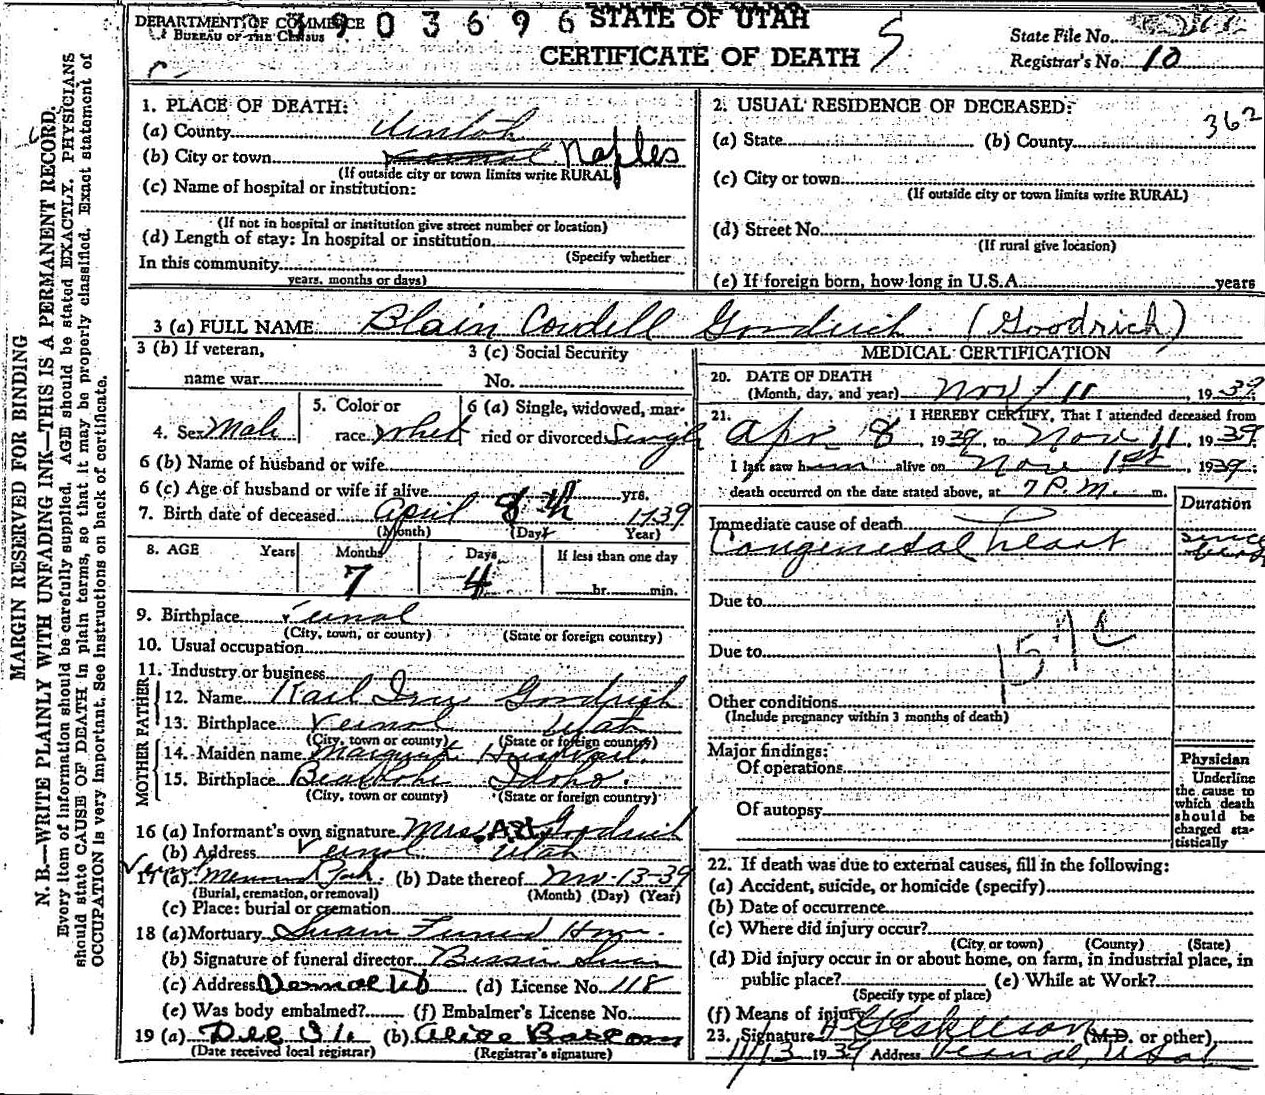 DEPARTMENT OF COMMERCE
BUREAU OF THE CENSUS
903696
STATE OF UTAH
CERTIFICATE OF DEATH
S
State File No.
Registrar's No. 10
MARGIN RESERVED FOR BINDING
N. B.—WRITE PLAINLY WITH UNFADING INK—THIS IS A PERMANENT RECORD.
Every item of information should be carefully supplied. AGE should be stated EXACTLY. PHYSICIANS
should state CAUSE OF DEATH in plain terms, so that it may be properly classified. Exact statement of
OCCUPATION is very important. See instructions on back of certificate.
1. PLACE OF DEATH:
(a) County Uintah
(b) City or town Vernal Naples
(If outside city or town limits write RURAL)
(c) Name of hospital or institution:
(If not in hospital or institution give street number or location)
(d) Length of stay: In hospital or institution
(Specify whether
In this community
years, months or days)
2. USUAL RESIDENCE OF DECEASED:
362
(a) State (b) County
(c) City or town
(If outside city or town limits write RURAL)
(d) Street No.
(If rural give location)
(e) If foreign born, how long in U.S.A. years
3 (a) FULL NAME Blain Cowdell Goodrich (Goodrich)
3 (b) If veteran,
name war
3 (c) Social Security
No.
4. Sex Male
5. Color or
race White
6 (a) Single, widowed, mar-
ried or divorced Single
6 (b) Name of husband or wife
6 (c) Age of husband or wife if alive yrs.
7. Birth date of deceased April 8th 1939
(Month) (Day) Year)
8. AGE Years Months Days If less than one day
7 4 hr. min.
9. Birthplace Vernal
(City, town, or county) (State or foreign country)
10. Usual occupation
11. Industry or business
FATHER
12. Name Karl Goodrich
13. Birthplace Vernal Utah
(City, town or county) (State or foreign country)
MOTHER
14. Maiden name
15. Birthplace Idaho.
(City, town or county) (State or foreign country)
16 (a) Informant's own signature Mrs. Goodrich
(b) Address Vernal Utah
17 (a) Vernal Memorial Park. (b) Date thereof Nov-13-39
(Burial, cremation, or removal) (Month) (Day) (Year)
(c) Place: burial or cremation
18 (a) Mortuary Swain Funeral Home.
(b) Signature of funeral director Swain
(c) Address Vernal Ut (d) License No. 118
(e) Was body embalmed? (f) Embalmer's License No.
19 (a) Dec 31. (b) Alice Bascom
(Date received local registrar) (Registrar's signature)
MEDICAL CERTIFICATION
20. DATE OF DEATH
(Month, day, and year) Nov / 11, 1939
21. I HEREBY CERTIFY, That I attended deceased from
Apr 8, 1939, to Nov 11, 1939
I last saw him alive on Nov 1st, 1939;
death occurred on the date stated above, at 7 P.M. m.
Duration
Immediate cause of death
Congenital heart since birth
Due to
157c
Due to
Other conditions
(Include pregnancy within 3 months of death)
Major findings:
Of operations
Of autopsy
Physician
Underline
the cause to
which death
should be
charged sta-
tistically
22. If death was due to external causes, fill in the following:
(a) Accident, suicide, or homicide (specify)
(b) Date of occurrence
(c) Where did injury occur?
(City or town) (County) (State)
(d) Did injury occur in or about home, on farm, in industrial place, in
public place? (e) While at Work?
(Specify type of place)
(f) Means of injury
23. Signature (M.D. or other)
11/13 1939 Address Vernal, Utah